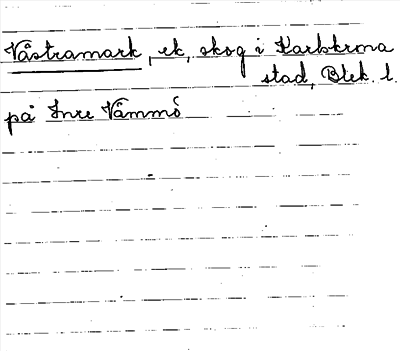 Våstramark, ek. skog i Karlskrona
stad, Blek. l.
på Inre Våmmö